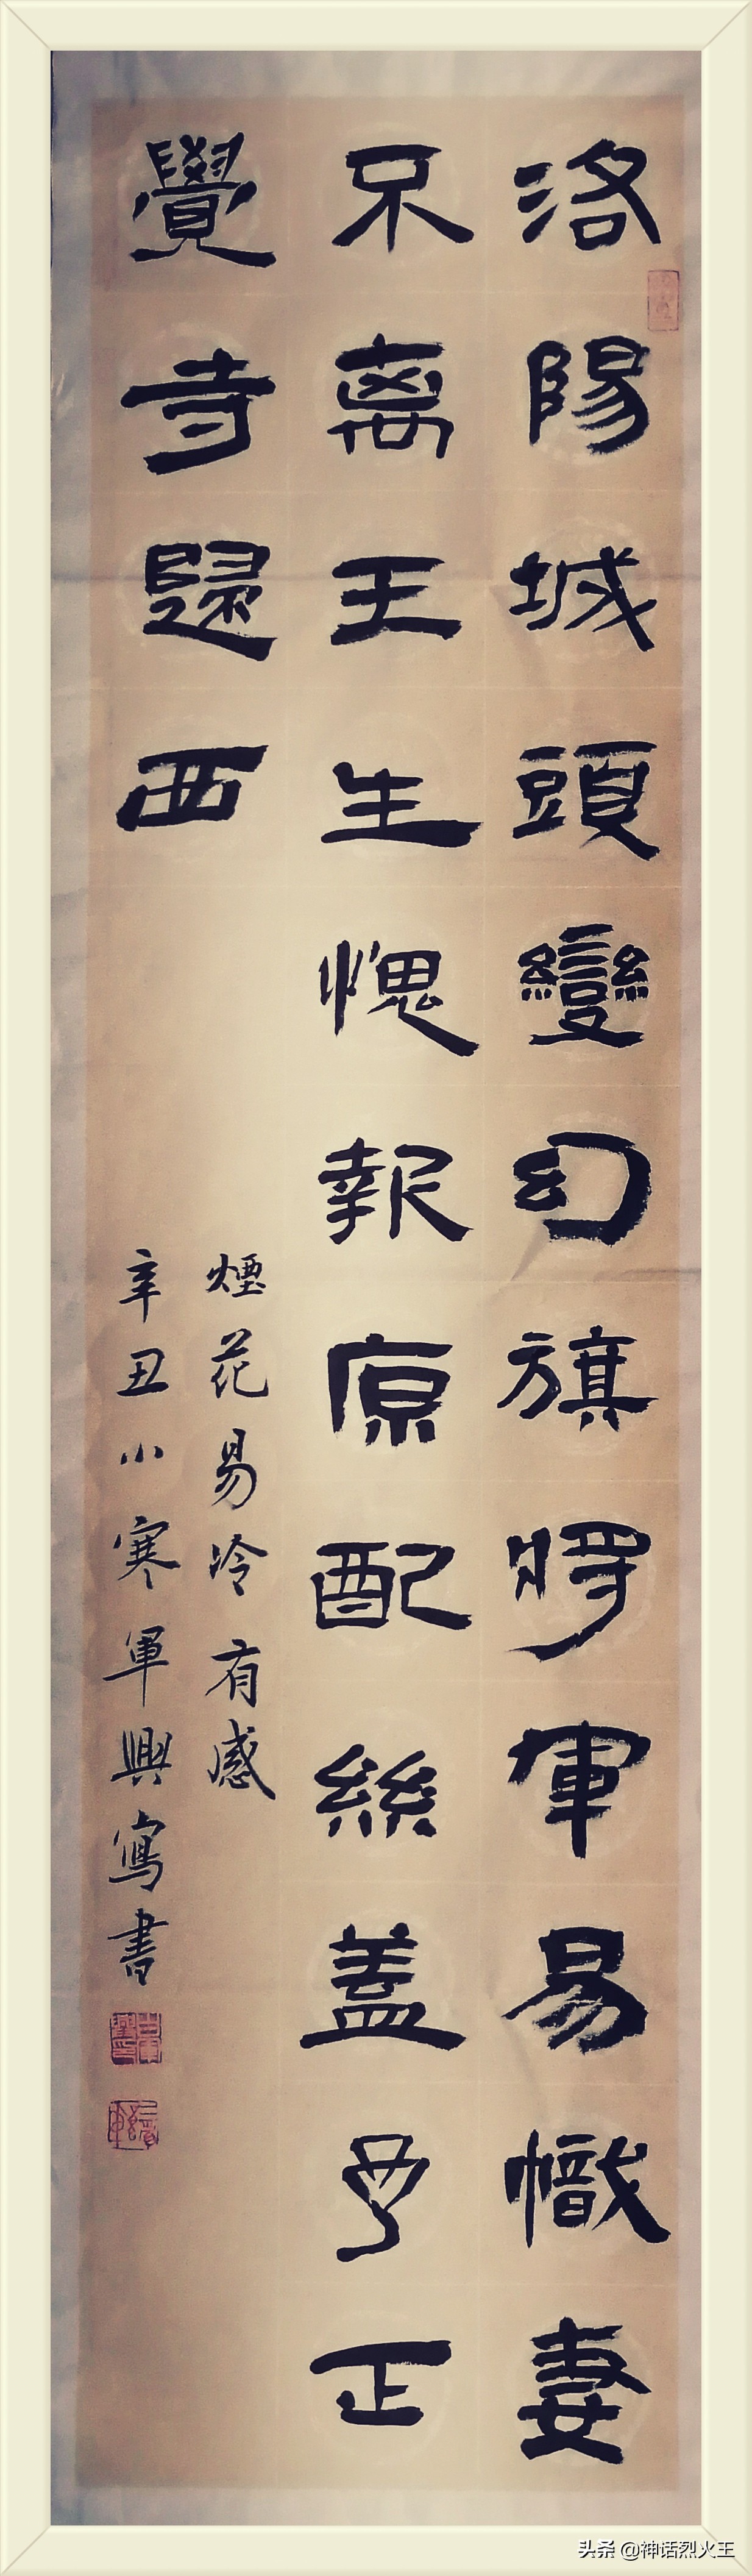 洛陽城頭變幻旗將軍易幟妻
不離王生愧報原配絲蓋正
覺寺歸西
煙花易冷有感
辛丑小寒軍興寫書
头条 @神话烈火王